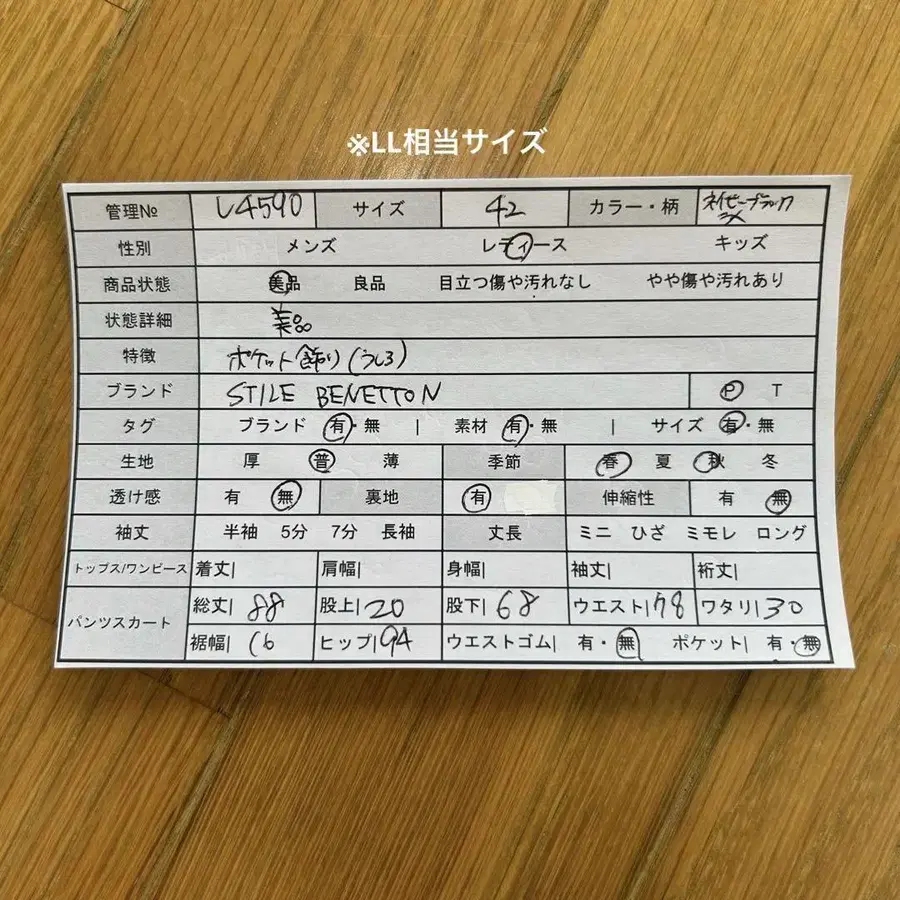 ※LL相当サイズ
管理№ U4590 サイズ 42 カラー・柄 ネイビーブラック
性別 メンズ レディース キッズ
商品状態 美品 良品 目立つ傷や汚れなし やや傷や汚れあり
状態詳細 美品
特徴 ポケット飾り(うしろ)
ブランド STILE BENETTON P T
タグ ブランド 有・無 | 素材 有・無 | サイズ 有・無
生地 厚 普 薄 季節 春 夏 秋 冬
透け感 有 無 裏地 有 伸縮性 有 無
袖丈 半袖 5分 7分 長袖 丈長 ミニ ひざ ミモレ ロング
トップス/ワンピース 着丈| 肩幅| 身幅| 袖丈| 裄丈|
パンツスカート 総丈| 88 股上| 20 股下| 68 ウエスト| 78 ワタリ| 30
裾幅| 16 ヒップ| 94 ウエストゴム| 有・無 ポケット| 有・無